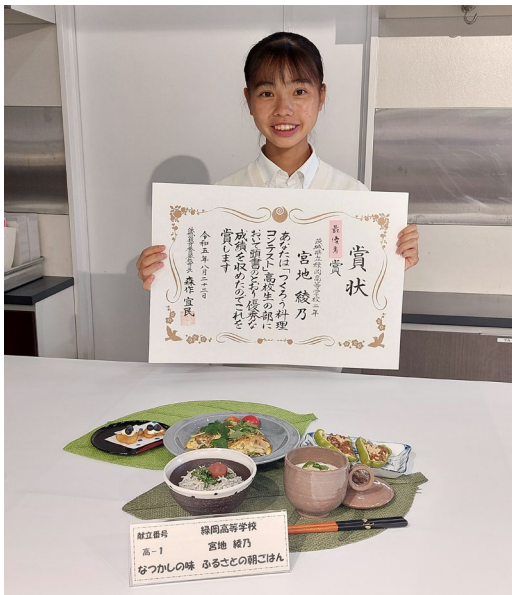 賞状
最優秀賞
茨城県立緑岡高等学校二年
宮地 綾乃
あなたは「つくろう料理
コンテスト」高校生の部に
おいて頭書のとおり優秀な
成績を収めたのでこれを
賞します
令和五年八月二十三日
森作 宜民
献立番号 緑岡高等学校
高-1 宮地 綾乃
なつかしの味 ふるさとの朝ごはん